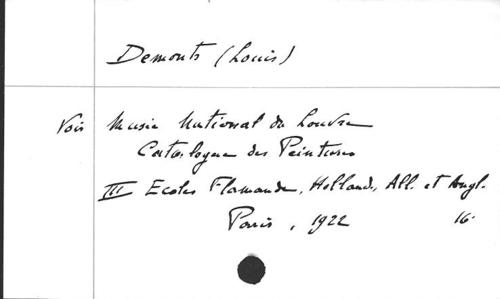 Demonts (Louis)
Voir Musée National du Louvre
Catalogue des Peintures
III Ecoles Flamande, Holland., All. et Angl.
Paris, 1922 16.